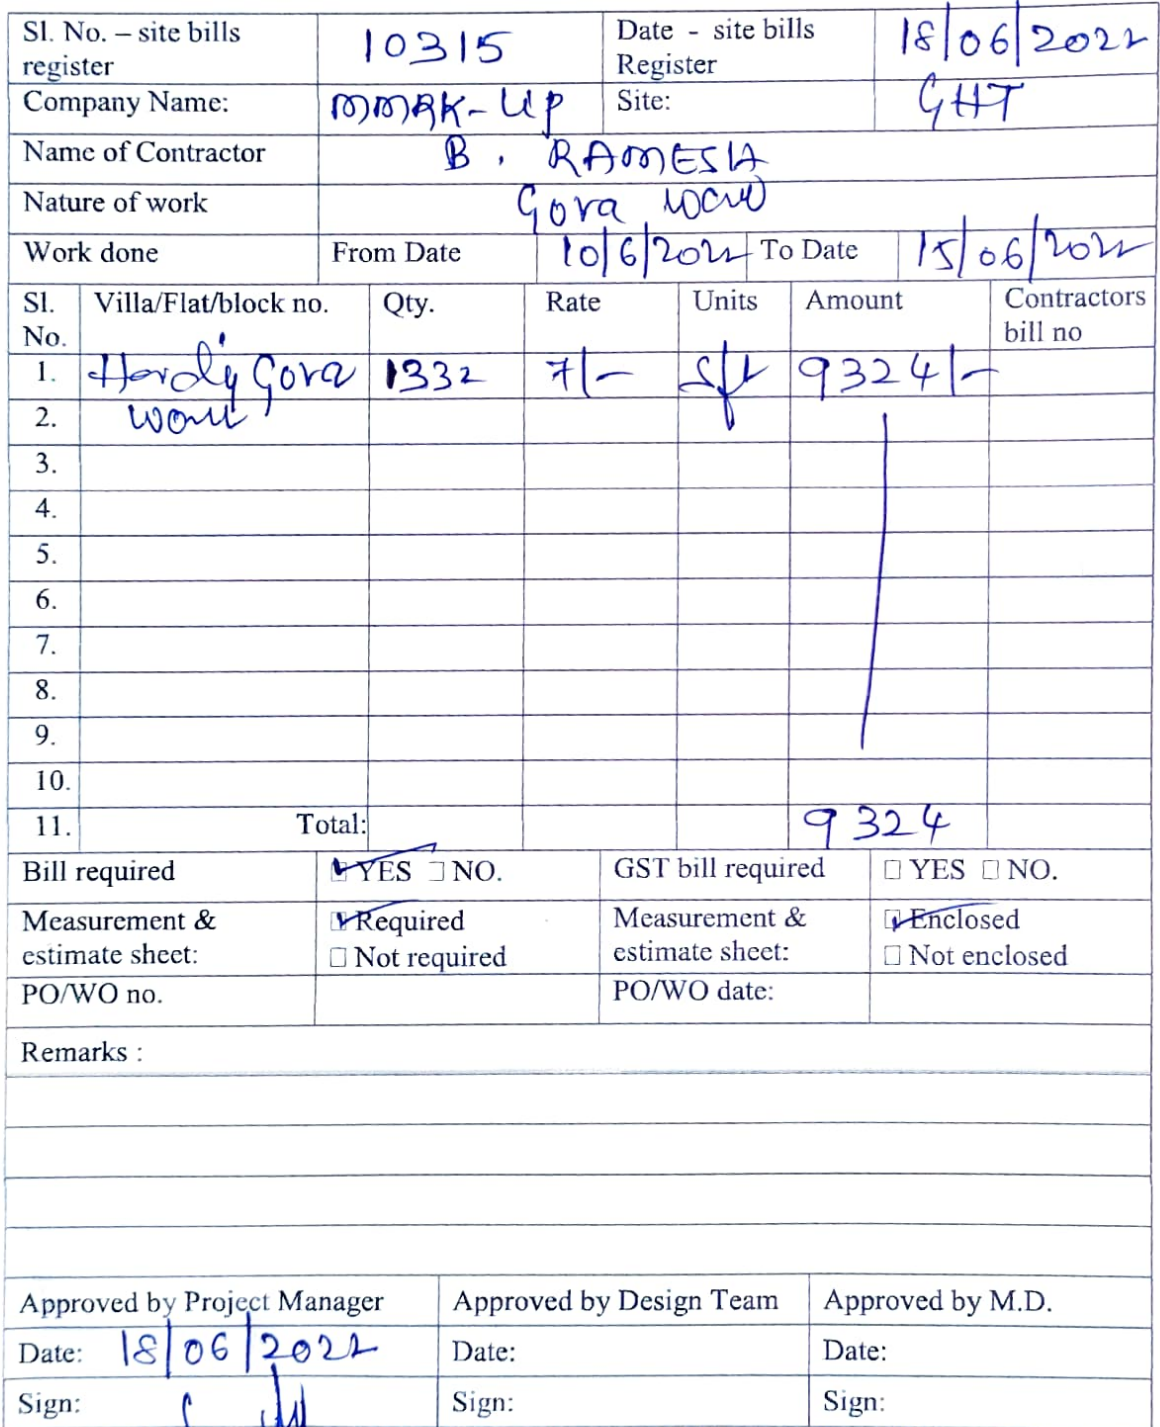 Sl. No. – site bills register 10315 Date - site bills Register 18/06/2022
Company Name: MMRK-UP Site: GHT
Name of Contractor B. RAMESH
Nature of work Gova work
Work done From Date 10/6/2022 To Date 15/06/2022
Sl. No. Villa/Flat/block no. Qty. Rate Units Amount Contractors bill no
1. Gova 1332 7/- sft 9324/-
2. work
3.
4.
5.
6.
7.
8.
9.
10.
11. Total: 9324
Bill required YES NO. GST bill required YES NO.
Measurement & estimate sheet: Required Not required Measurement & estimate sheet: Enclosed Not enclosed
PO/WO no. PO/WO date:
Remarks :
Approved by Project Manager Approved by Design Team Approved by M.D.
Date: 18/06/2022 Date: Date:
Sign: Sign: Sign: